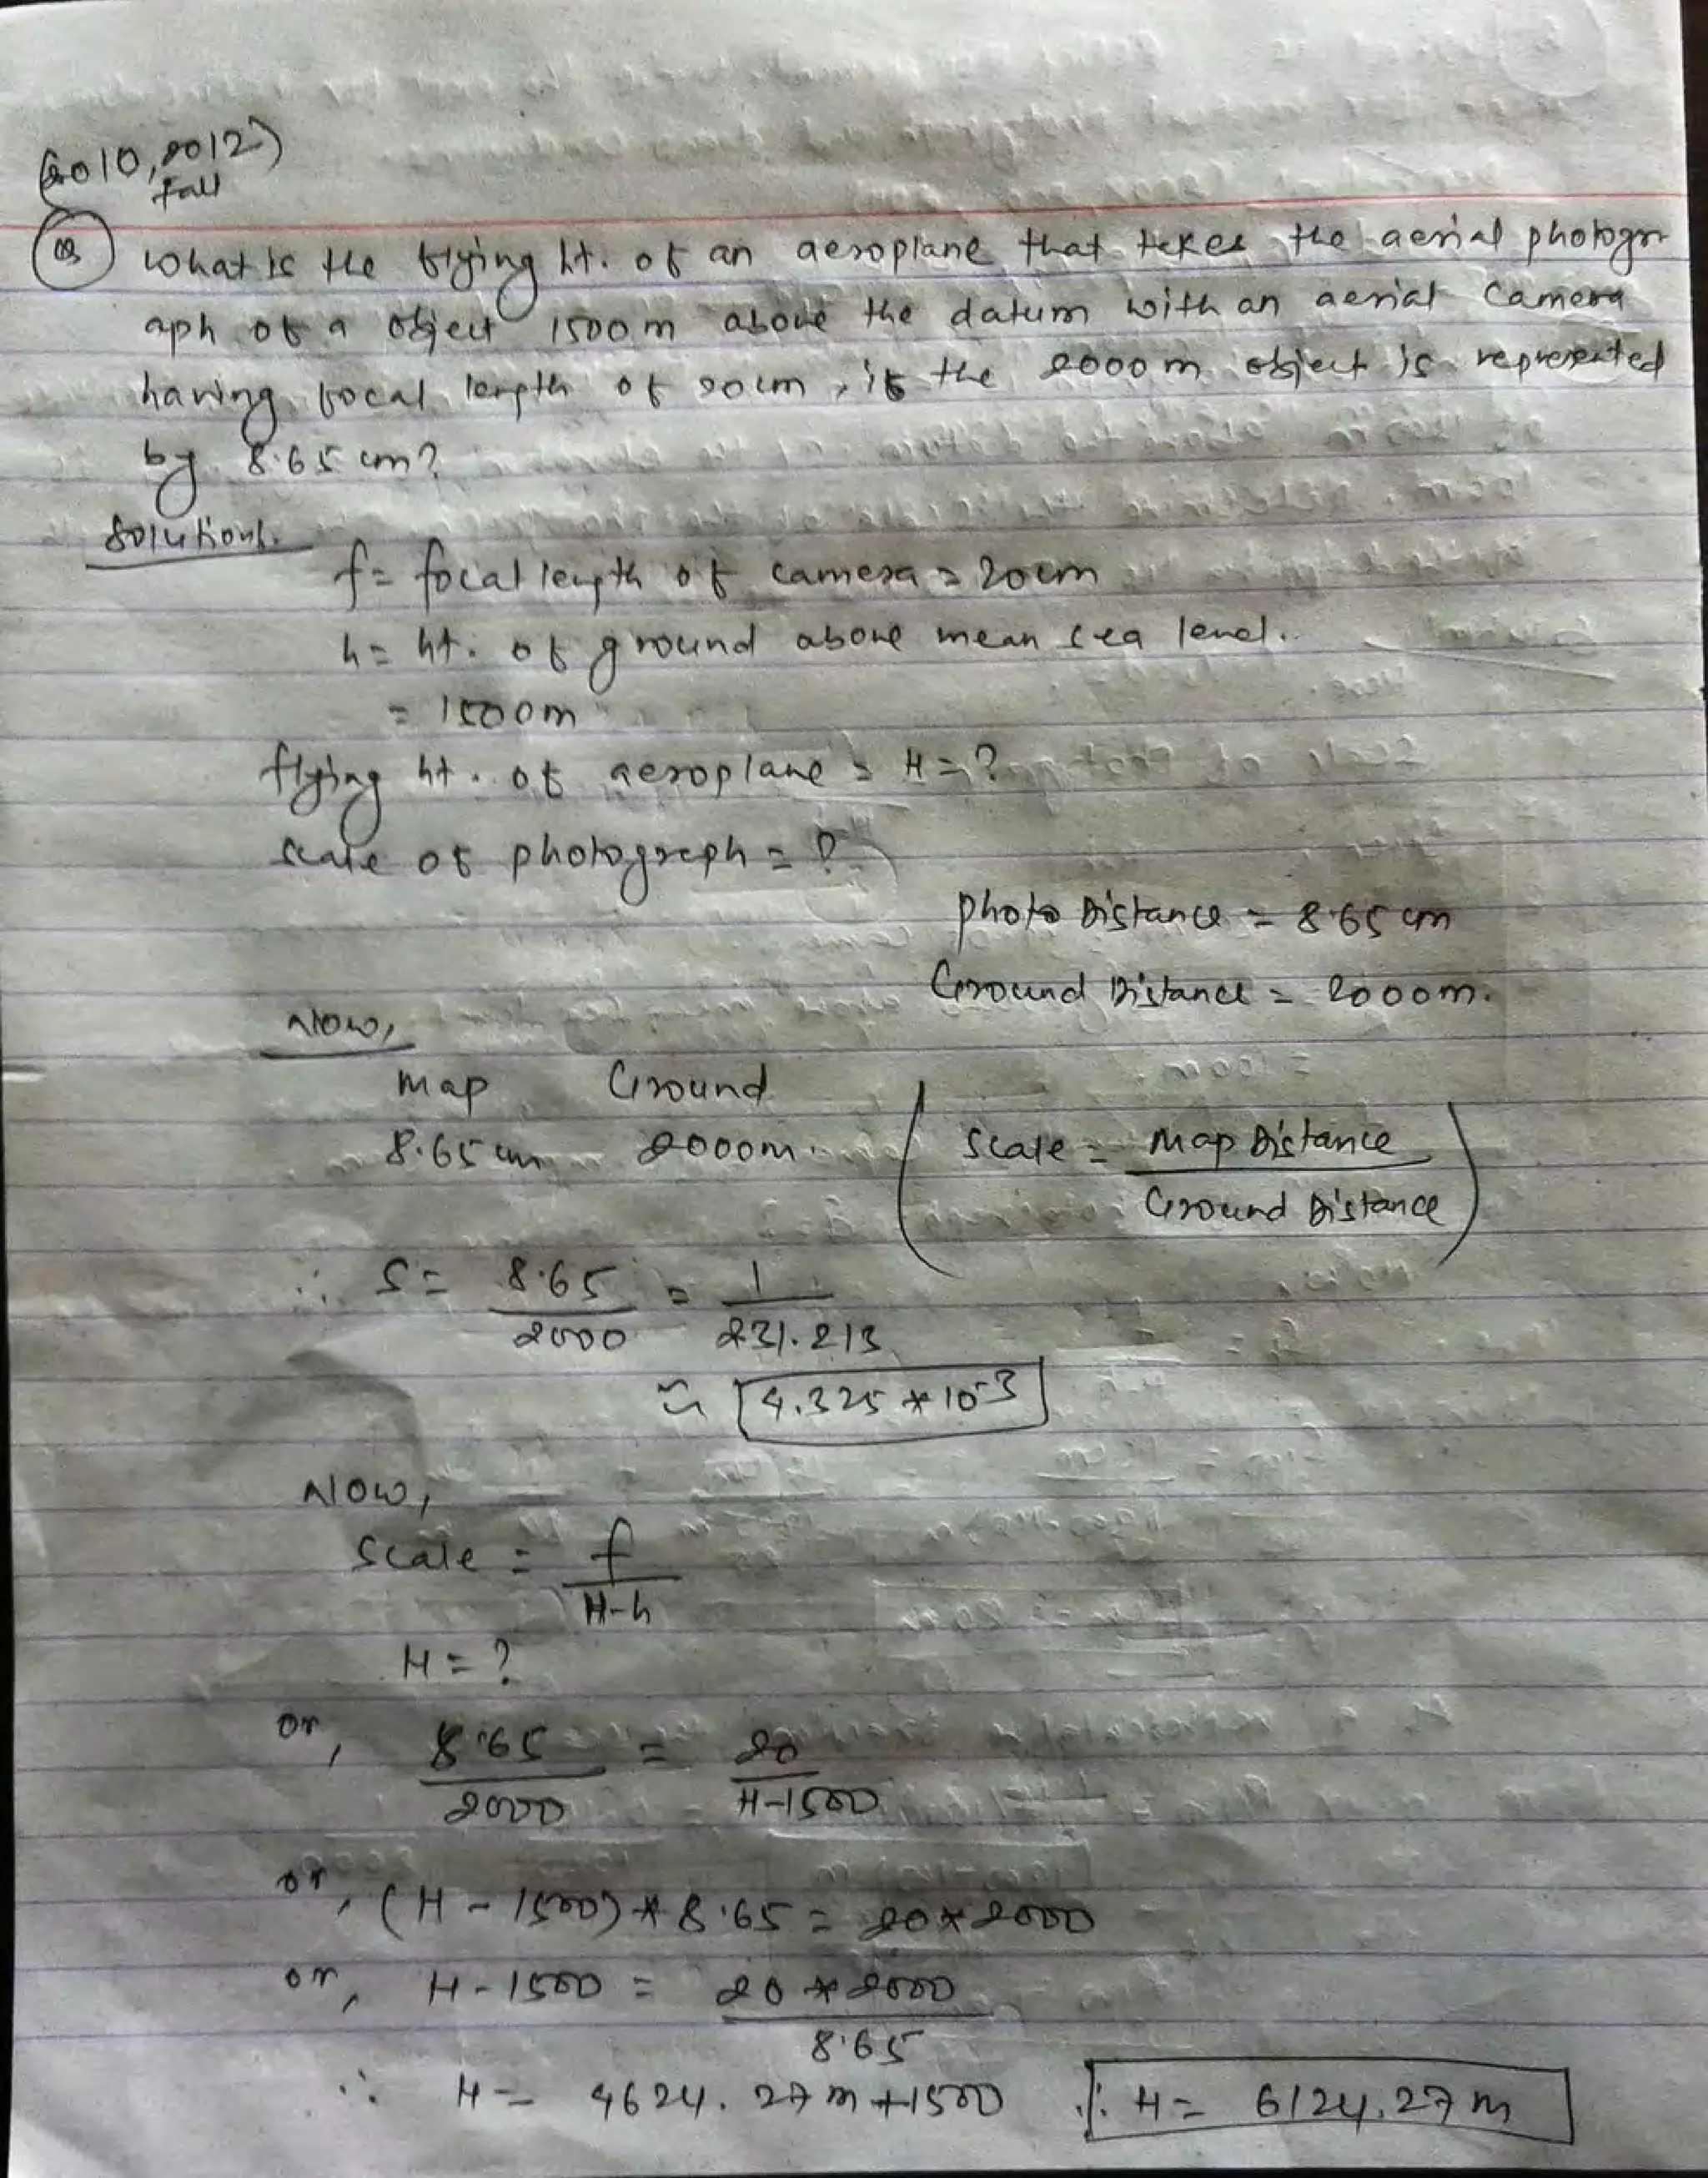 (2010, 2012)
fall
Q3 What is the flying ht. of an aeroplane that takes the aerial photogr
aph of a object 1500m above the datum with an aerial camera
having focal length of 20cm, if the 2000m object is represented
by 8.65 cm?
Solution:
f = focal length of camera = 20cm
h = ht. of ground above mean sea level.
= 1500m
flying ht. of aeroplane = H = ?
Scale of photograph = ?
photo Distance = 8.65 cm
Ground Distance = 2000m.
Now,
Map Ground
8.65 cm 2000m.
( Scale = Map Distance / Ground Distance )
∴ S = 8.65 / 2000 = 1 / 231.213
≈ 4.325 * 10^-3
Now,
Scale = f / H-h
H = ?
or, 8.65 / 2000 = 20 / H-1500
or, (H - 1500) * 8.65 = 20 * 2000
or, H - 1500 = 20 * 2000 / 8.65
∴ H = 4624.27m + 1500 ∴ H = 6124.27m